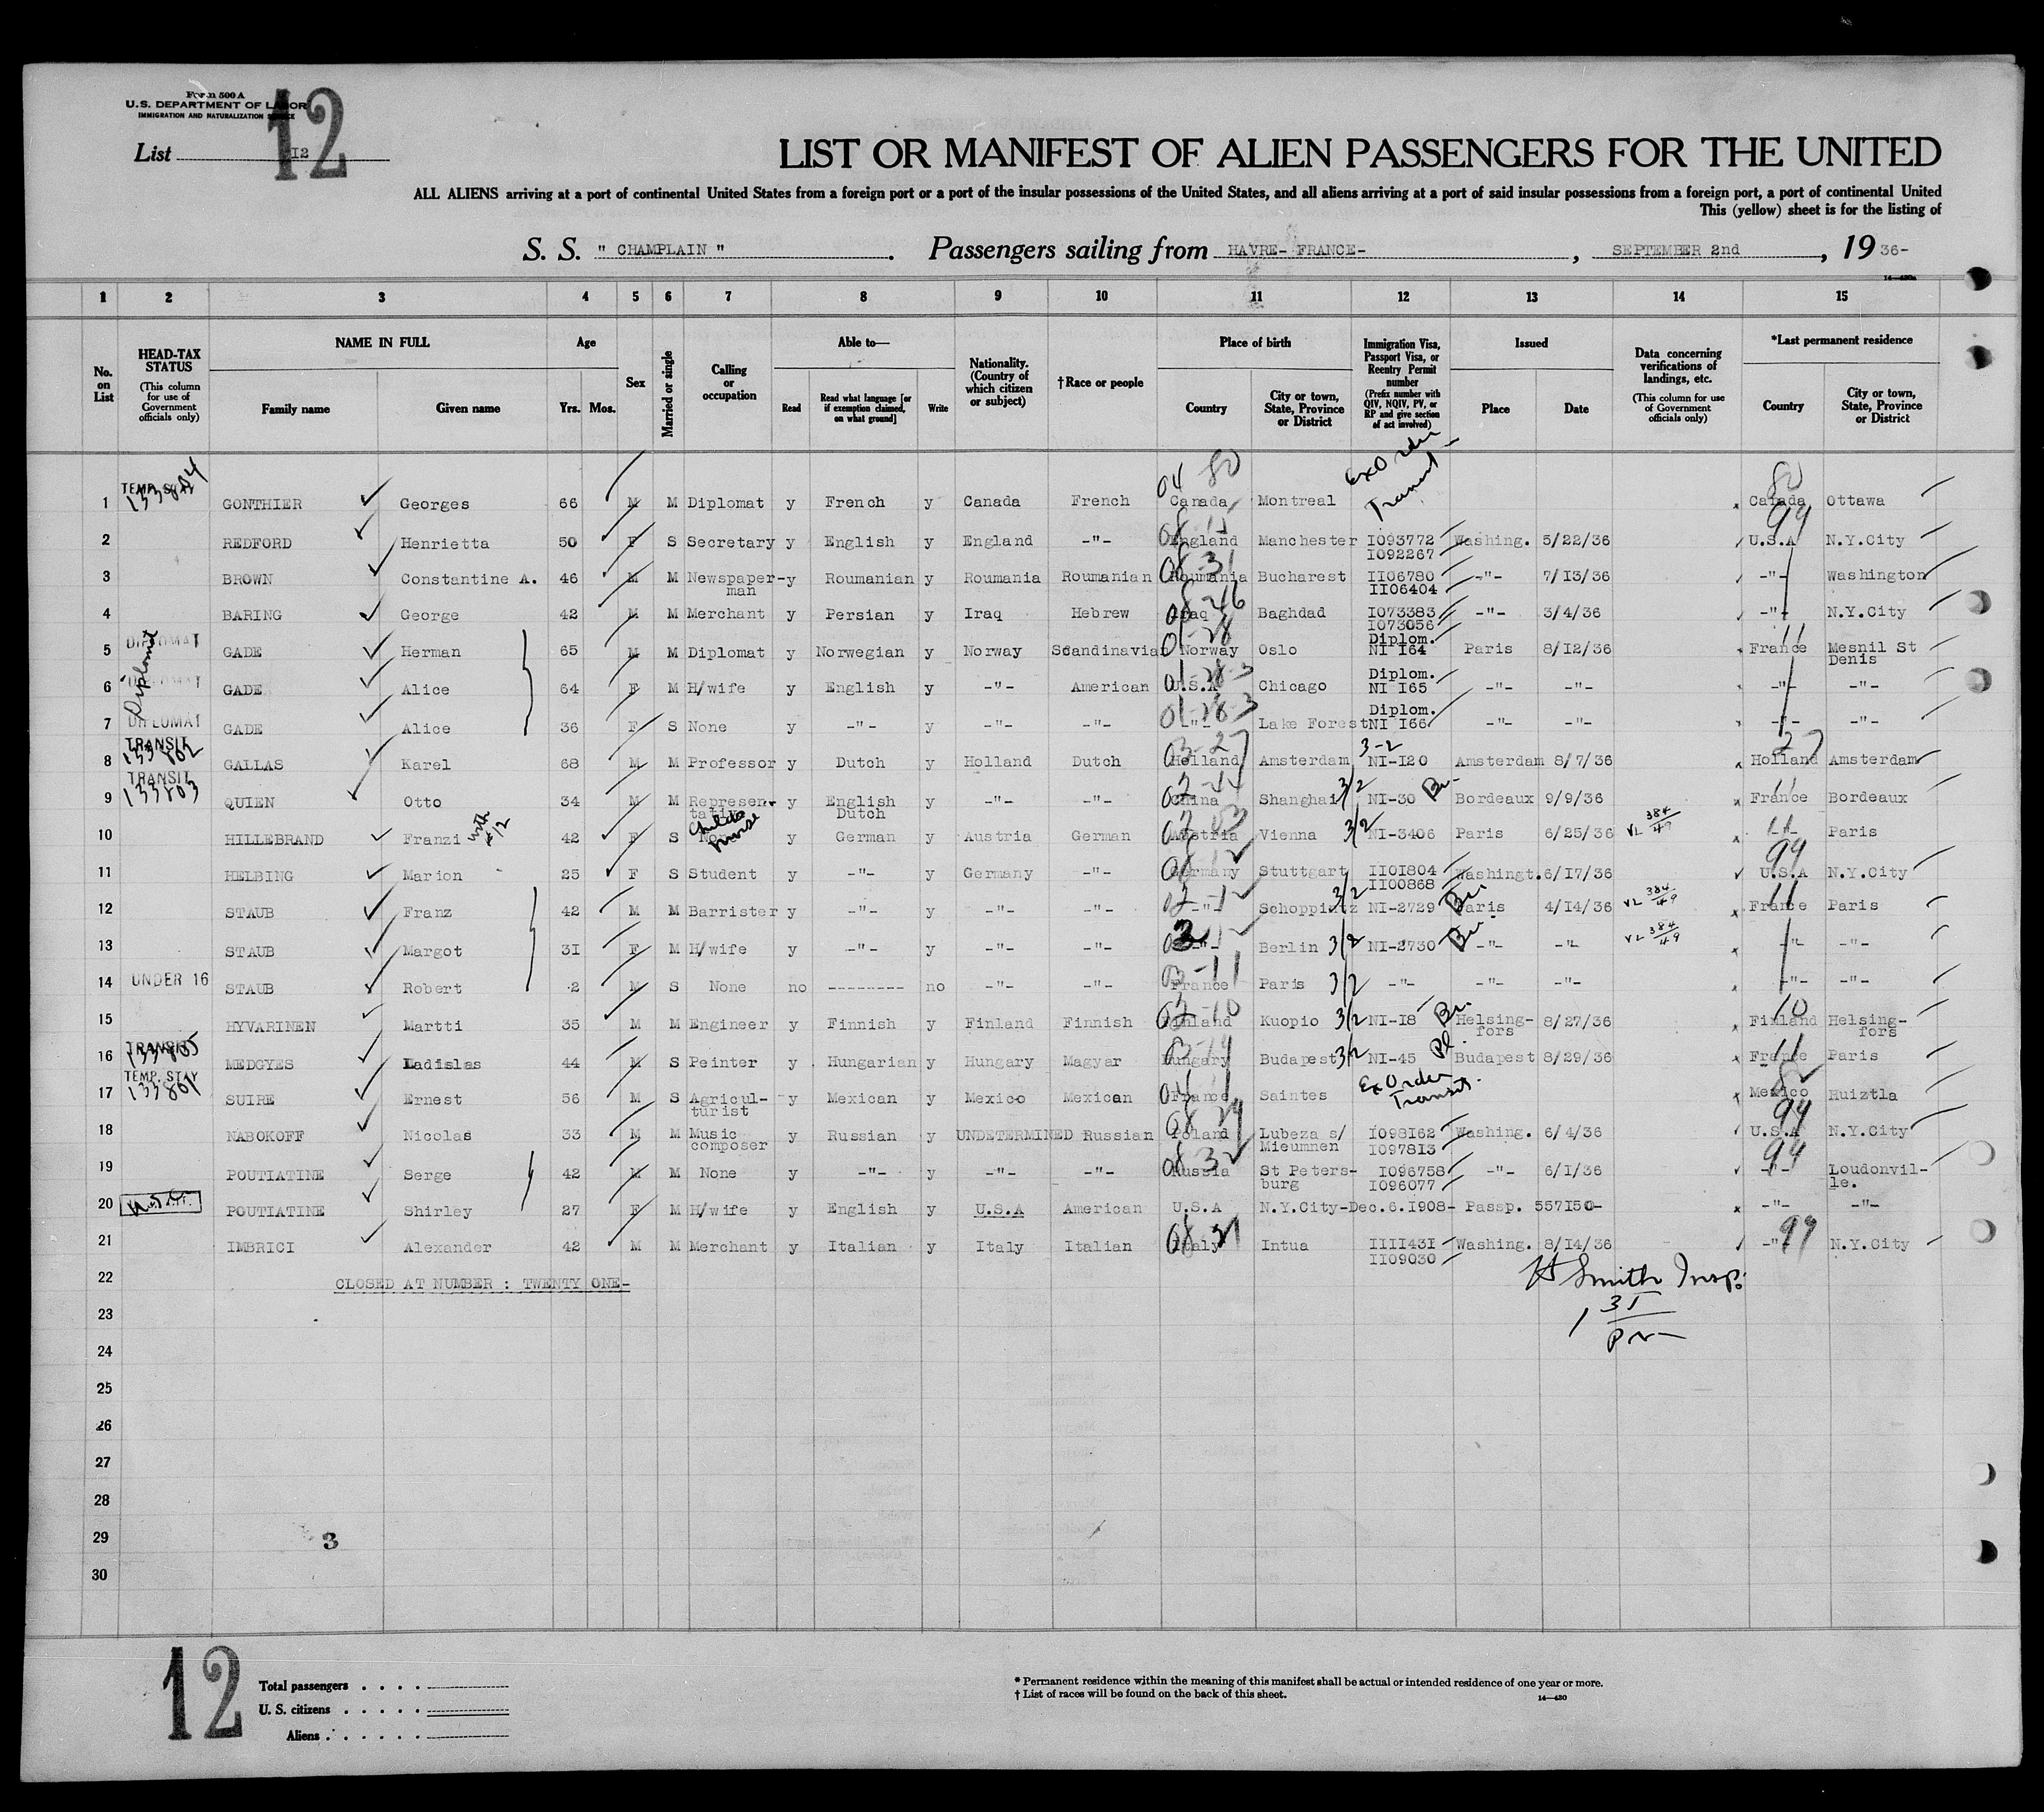 Form 500 A
U.S. DEPARTMENT OF LABOR
IMMIGRATION AND NATURALIZATION SERVICE
12
List 12
LIST OR MANIFEST OF ALIEN PASSENGERS FOR THE UNITED
ALL ALIENS arriving at a port of continental United States from a foreign port or a port of the insular possessions of the United States, and all aliens arriving at a port of said insular possessions from a foreign port, a port of continental United
This (yellow) sheet is for the listing of
S. S. " CHAMPLAIN ". Passengers sailing from HAVRE- FRANCE- , SEPTEMBER 2nd , 19 36-
14—430a
1 2 3 4 5 6 7 8 9 10 11 12 13 14 15
No. on List
HEAD-TAX STATUS (This column for use of Government officials only)
NAME IN FULL Family name Given name
Age Yrs. Mos.
Sex
Married or single
Calling or occupation
Able to— Read Read what language [or if exemption claimed, on what ground] Write
Nationality. (Country of which citizen or subject)
†Race or people
Place of birth Country City or town, State, Province or District
Immigration Visa, Passport Visa, or Reentry Permit number (Prefix number with QIV, NQIV, PV, or RP and give section of act involved)
Issued Place Date
Data concerning verifications of landings, etc. (This column for use of Government officials only)
*Last permanent residence Country City or town, State, Province or District
1 TEMP. STAY 133804 GONTHIER Georges 66 M M Diplomat y French y Canada French 04 80 Canada Montreal Ex Order Transit 80 Canada Ottawa
2 REDFORD Henrietta 50 F S Secretary y English y England -"- England Manchester I093772 I092267 Washing. 5/22/36 99 U.S.A N.Y.City
3 BROWN Constantine A. 46 M M Newspaper-man y Roumanian y Roumania Roumanian 08 31 Roumania Bucharest II06780 II06404 -"- 7/13/36 -"- Washington
4 BARING George 42 M M Merchant y Persian y Iraq Hebrew 08 46 Iraq Baghdad I073383 I073056 -"- 3/4/36 -"- N.Y.City
5 DIPLOMAT Diplomat GADE Herman 65 M M Diplomat y Norwegian y Norway Scandinavian 01-28 Norway Oslo Diplom. NI I64 Paris 8/12/36 11 France Mesnil St Denis
6 DIPLOMAT GADE Alice 64 F M H/wife y English y -"- American 01-28-3 U.S.A Chicago Diplom. NI I65 -"- -"- -"- -"-
7 DIPLOMAT GADE Alice 36 F S None y -"- y -"- -"- 01-28-3 -"- Lake Forest Diplom. NI I66 -"- -"- -"- -"-
8 TRANSIT 133802 GALLAS Karel 68 M M Professor y Dutch y Holland Dutch 03-27 Holland Amsterdam 3-2 NI-I20 Amsterdam 8/7/36 27 Holland Amsterdam
9 TRANSIT 133803 QUIEN Otto 34 M M Represen-tative y English Dutch y -"- -"- 02-44 China Shanghai 3/2 NI-30 Bordeaux 9/9/36 11 France Bordeaux
10 HILLEBRAND Franzi with #12 42 F S Childs nurse y German y Austria German Austria Vienna 3/2 NI-3406 Paris 6/25/36 VL 384/49 -"- Paris
11 HELBING Marion 25 F S Student y -"- y Germany -"- 08 12 Germany Stuttgart II01804 II00868 Washingt. 6/17/36 99 U.S.A N.Y.City
12 STAUB Franz 42 M M Barrister y -"- y -"- -"- 02-12 -"- Schoppinitz 3/2 NI-2729 Paris 4/14/36 VL 384/49 11 France Paris
13 STAUB Margot 31 F M H/wife y -"- y -"- -"- -"- Berlin 3/2 NI-2730 -"- -"- VL 384/49 -"- -"-
14 UNDER 16 STAUB Robert 2 M S None no -------- no -"- -"- 03-11 France Paris 3/2 -"- -"- -"- -"- -"-
15 HYVARINEN Martti 35 M M Engineer y Finnish y Finland Finnish 02-10 Finland Kuopio 3/2 NI-I8 Helsing-fors 8/27/36 10 Finland Helsing-fors
16 TRANSIT 133805 MEDGYES Ladislas 44 M S Peinter y Hungarian y Hungary Magyar 03-14 Hungary Budapest 3/2 NI-45 Budapest 8/29/36 11 France Paris
17 TEMP. STAY 133801 SUIRE Ernest 56 M S Agricul-turist y Mexican y Mexico Mexican France Saintes Ex Order Transit. 82 Mexico Huiztla
18 NABOKOFF Nicolas 33 M M Music composer y Russian y UNDETERMINED Russian 08 29 Poland Lubeza s/ Mieumnen I098I62 I0978I3 Washing. 6/4/36 99 U.S.A N.Y.City
19 POUTIATINE Serge 42 M M None y -"- y -"- -"- 08 32 Russia St Peters-burg I096758 I096077 -"- 6/1/36 99 -"- Loudonvil-le.
20 U.S.C. POUTIATINE Shirley 27 F M H/wife y English y U.S.A American U.S.A N.Y.City-Dec.6.1908- Passp. 557150- -"- -"-
21 IMBRICI Alexander 42 M M Merchant y Italian y Italy Italian 08 21 Italy Intua IIII43I II09030 Washing. 8/14/36 -"- 99 N.Y.City
22 CLOSED AT NUMBER : TWENTY ONE-
H Smith Insp.
23
24
25
26
27
28
29 3
30
12
Total passengers
U. S. citizens
Aliens
* Permanent residence within the meaning of this manifest shall be actual or intended residence of one year or more.
† List of races will be found on the back of this sheet. 14—430